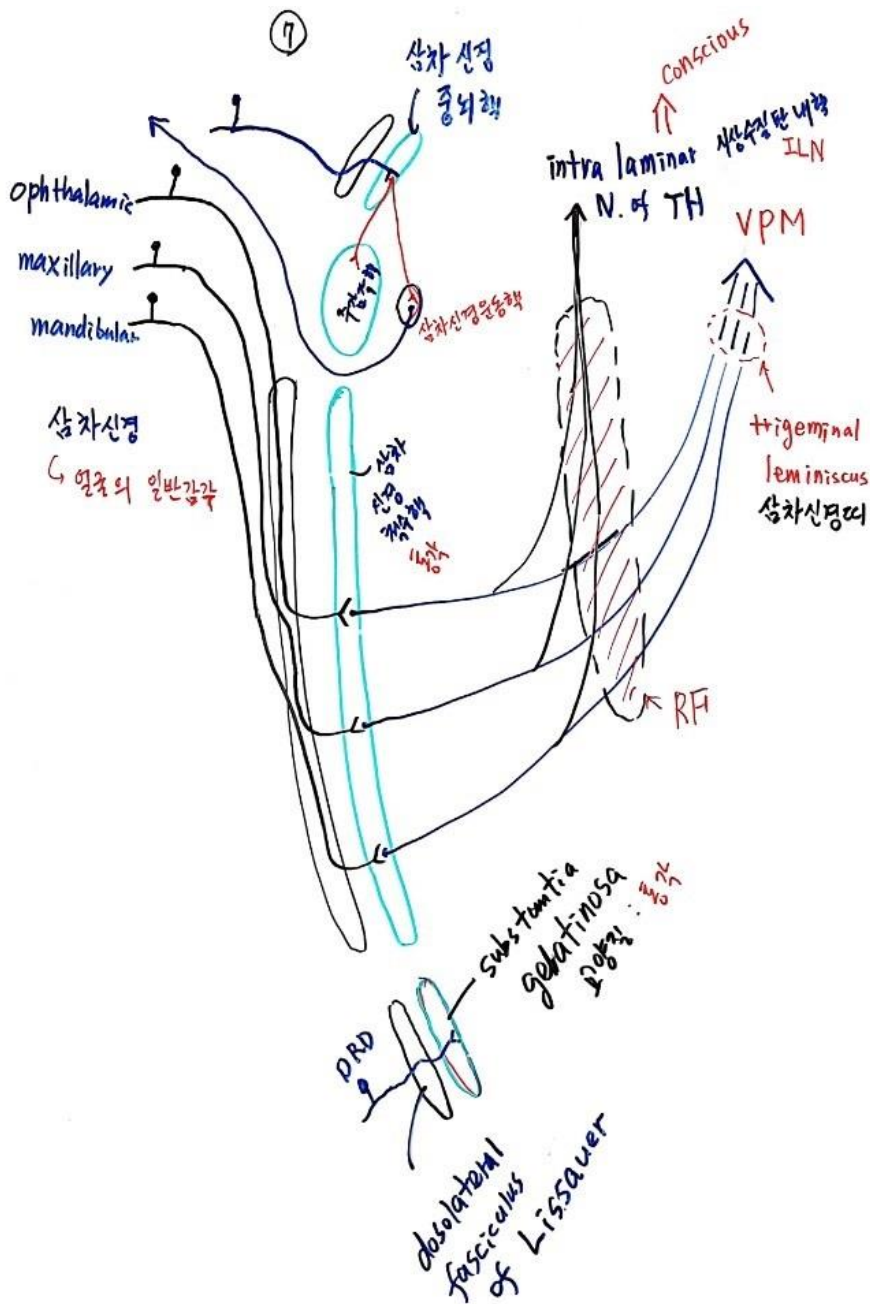 ⑦
삼차 신경
중뇌핵
conscious
intra laminar 시상수질판 내핵
ILN
N. of TH
VPM
ophthalamic
maxillary
mandibular
주감각핵
삼차신경운동핵
삼차신경
↳ 얼굴의 일반감각
삼차
신경
척수핵
통각
trigeminal
leminiscus
삼차신경띠
RF
substantia
gelatinosa
교양질 : 통각
DRD
dosolateral
fasciculus
of Lissauer